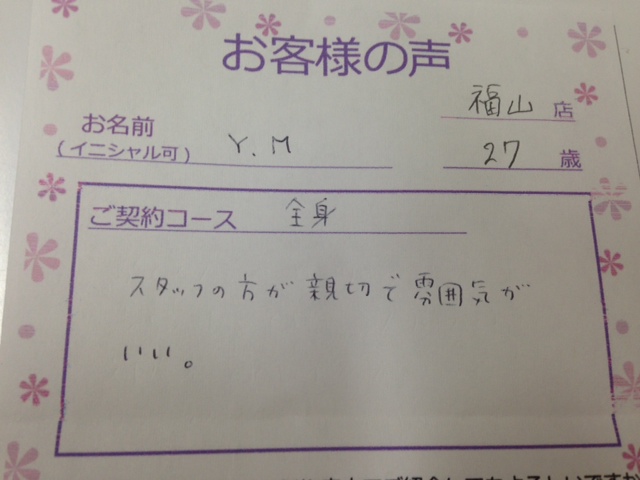 お客様の声
福山 店
お名前
(イニシャル可) Y.M 27 歳
ご契約コース 全身
スタッフの方が親切で雰囲気が
いい。